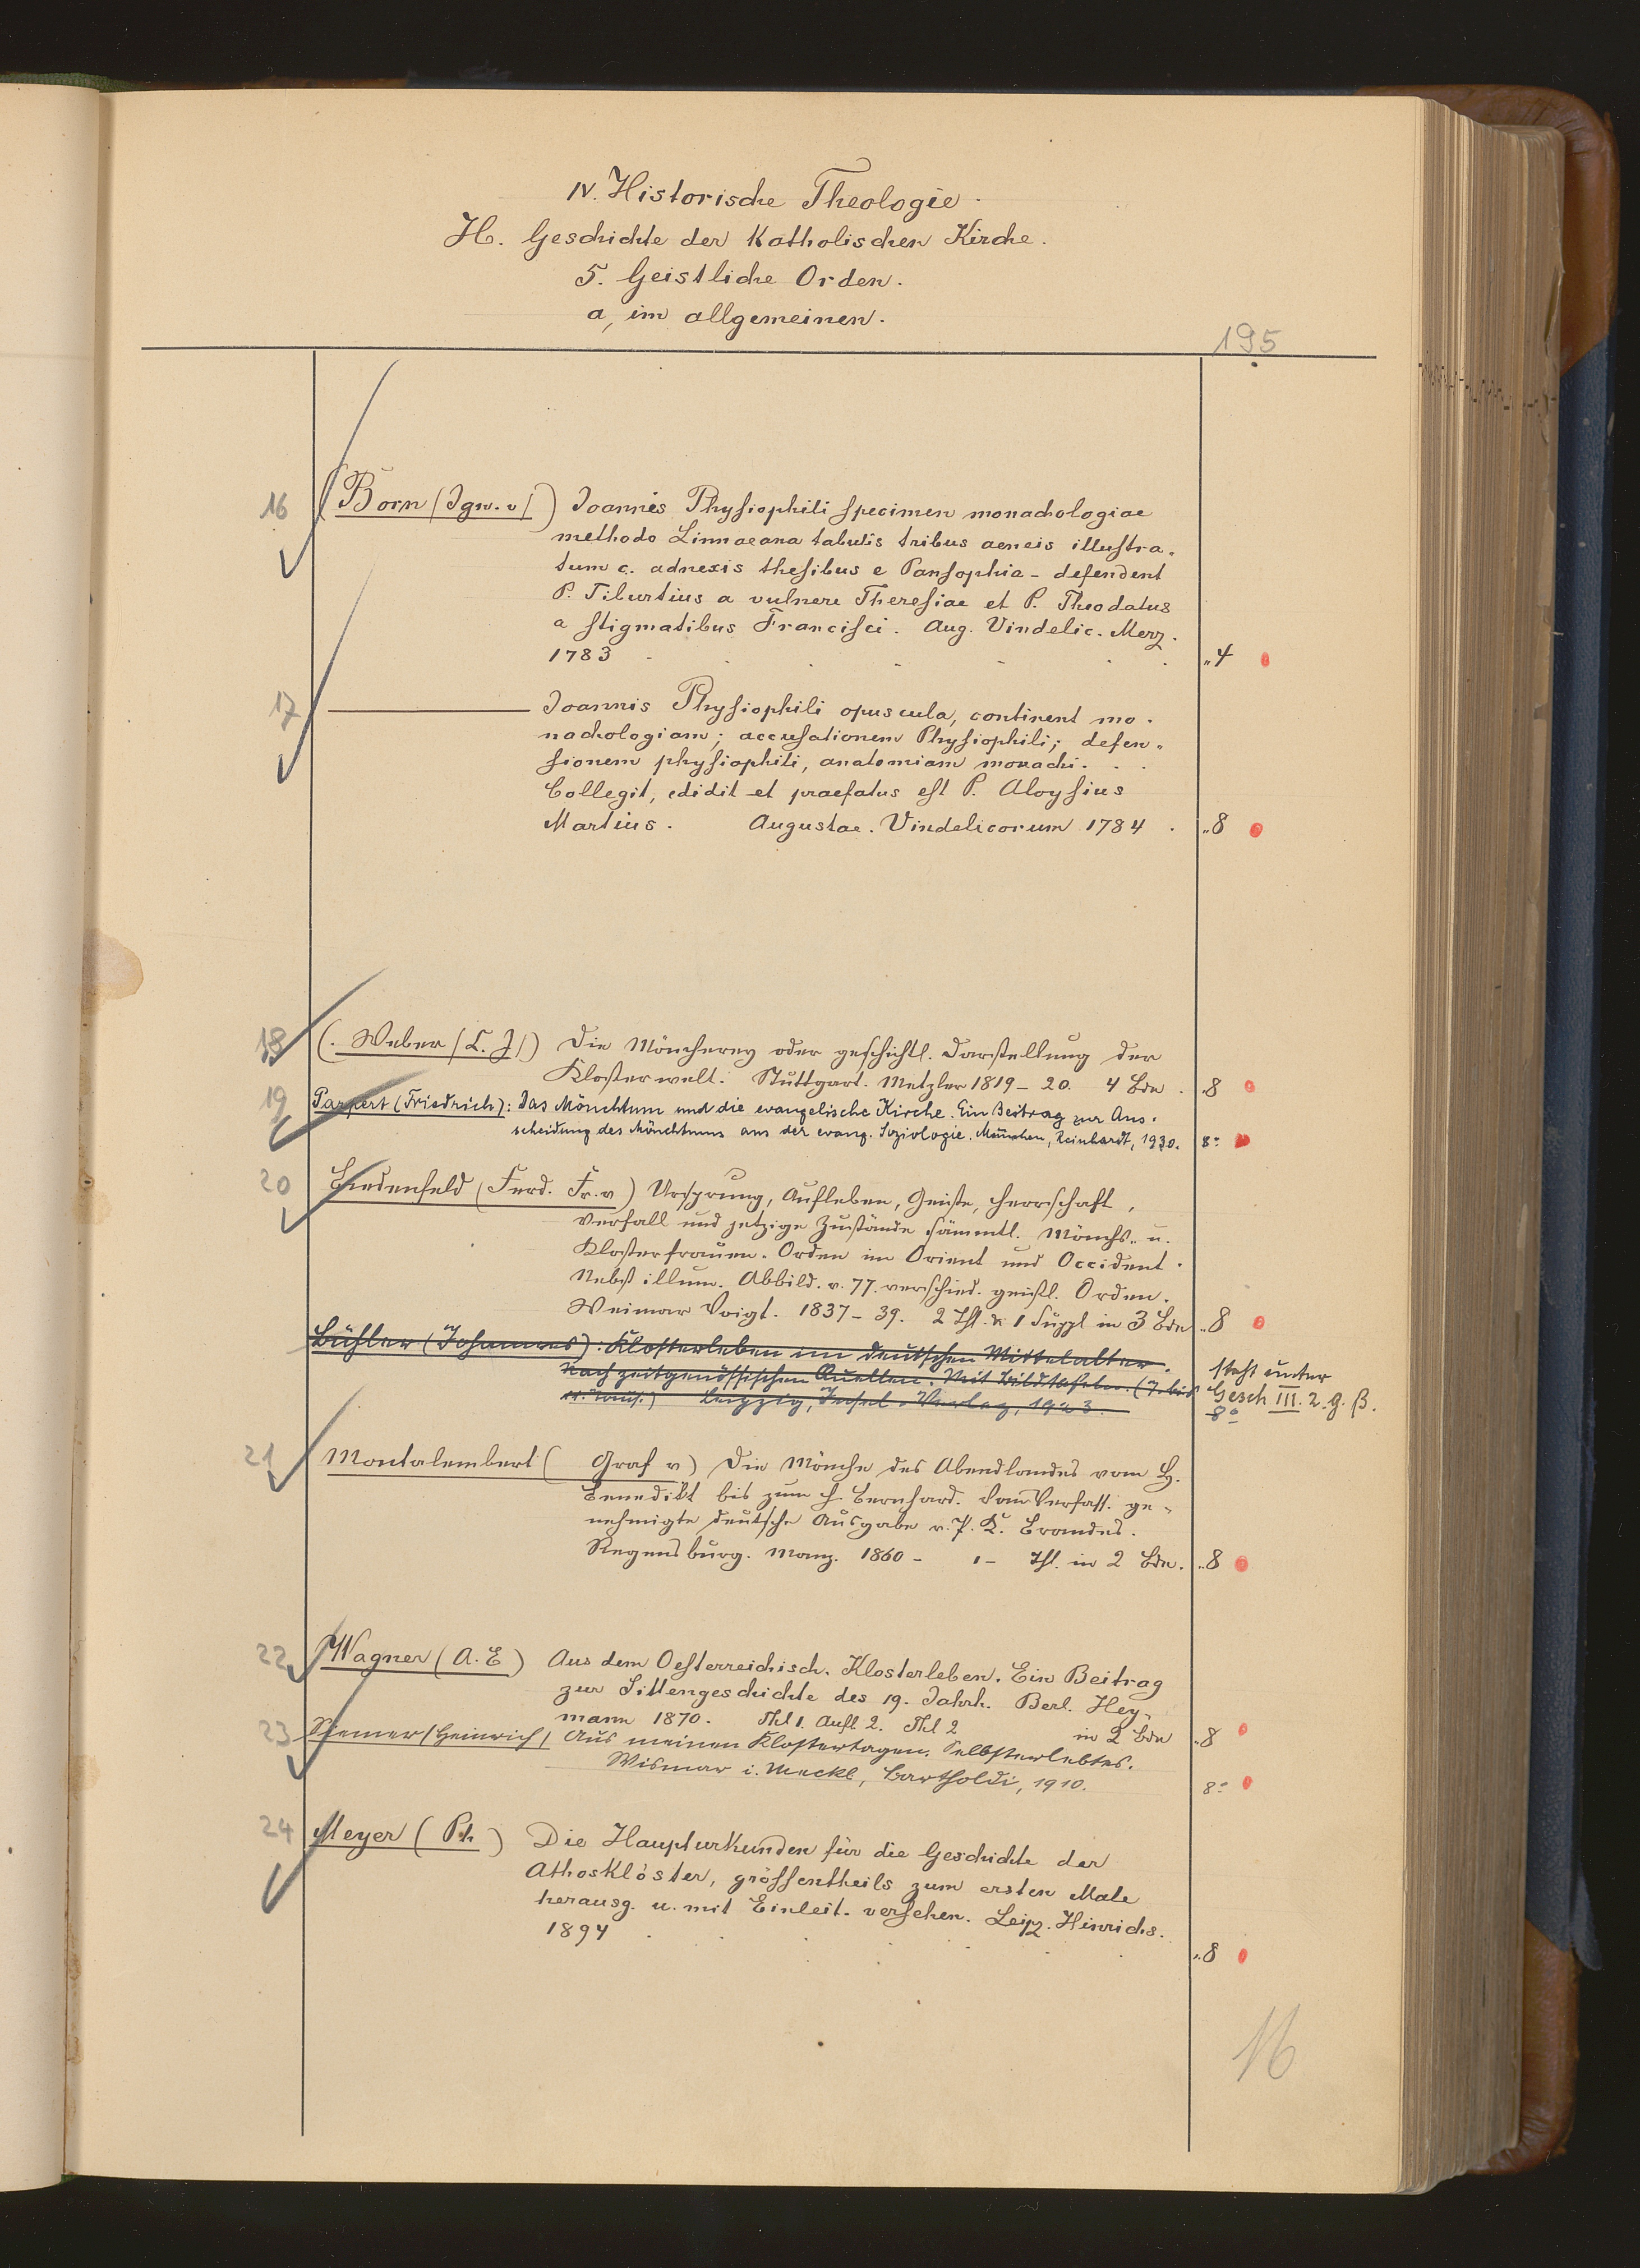 IV. Historische Theologie.
H. Geschichte der Katholischen Kirche.
5. Geistliche Orden.
a, im allgemeinen.
195
16 (Born (Ign. v)) Joannis Physiophili specimen monachologiae
methodo Linnaeana tabulis tribus aeneis illustra-
tum c. adnexis thesibus e Pansophia - defendent
P. Tiburtius a vulnere Theresiae et P. Theodatus
a stigmatibus Francisci. Aug. Vindelic. Merz.
1783 „4
17 Joannis Physiophili opuscula, continent mo-
nachologiam; accusationem Physiophili; defen-
sionem physiophili, anatomiam monachi.
Collegit, edidit et praefatus est P. Aloysius
Martius. Augustae. Vindelicorum 1784. „8
18 (Weber (C. J)) Die Möncherey oder geschichtl. Darstellung der
Klosterwelt. Stuttgart. Metzler 1819-20. 4 Bde. „8
19 Parpert (Friedrich): Das Mönchtum und die evangelische Kirche. Ein Beitrag zur Aus-
scheidung des Mönchtums aus der evang. Soziologie. München, Reinhardt, 1930. 8°
20 Biedenfeld (Ferd. Fr. v) Ursprung, Aufleben, Geiste, Herrschaft,
Verfall und jetzige Zustände sämmtl. Mönchs- u.
Klosterfrauen-Orden im Orient und Occident.
Nebst illum. Abbild. v. 77 verschied. geistl. Orden.
Weimar Voigt. 1837-39. 2 Thl. u 1 Suppl in 3 Bdn „8
Bühler (Johannes): Klosterleben im deutschen Mittelalter.
Nach zeitgenössischen Quellen. Mit Bildtafeln. (7. bis
Leipzig, Insel-Verlag, 1923.
steht unter
Gesch III. 2. g. β.
8°
21 Montalembert ( Graf v) Die Mönche des Abendlandes vom H.
Benedikt bis zum h Bernhard. Vom Verfass. ge-
nehmigte deutsche Ausgabe v. P. K. Brandes.
Regensburg. Manz. 1860 - 1 - Thl. in 2 Bdn. „8
22 Wagner (A. E) Aus dem Oesterreichisch. Klosterleben. Ein Beitrag
zur Sittengeschichte des 19. Jahrh. Berl. Hey-
mann 1870. Thl 1. Aufl 2. Thl 2 in 2 Bdn „8
23 (Heinrich) Aus meinen Klostertagen. Selbsterlebtes.
Wismar i. Meckl, Bartholdi, 1910. 8°
24 Meyer (Ph) Die Haupturkunden für die Geschichte der
Athosklöster, grössentheils zum ersten Male
herausg. u. mit Einleit. versehen. Leipz. Hinrichs.
1894 „8
16